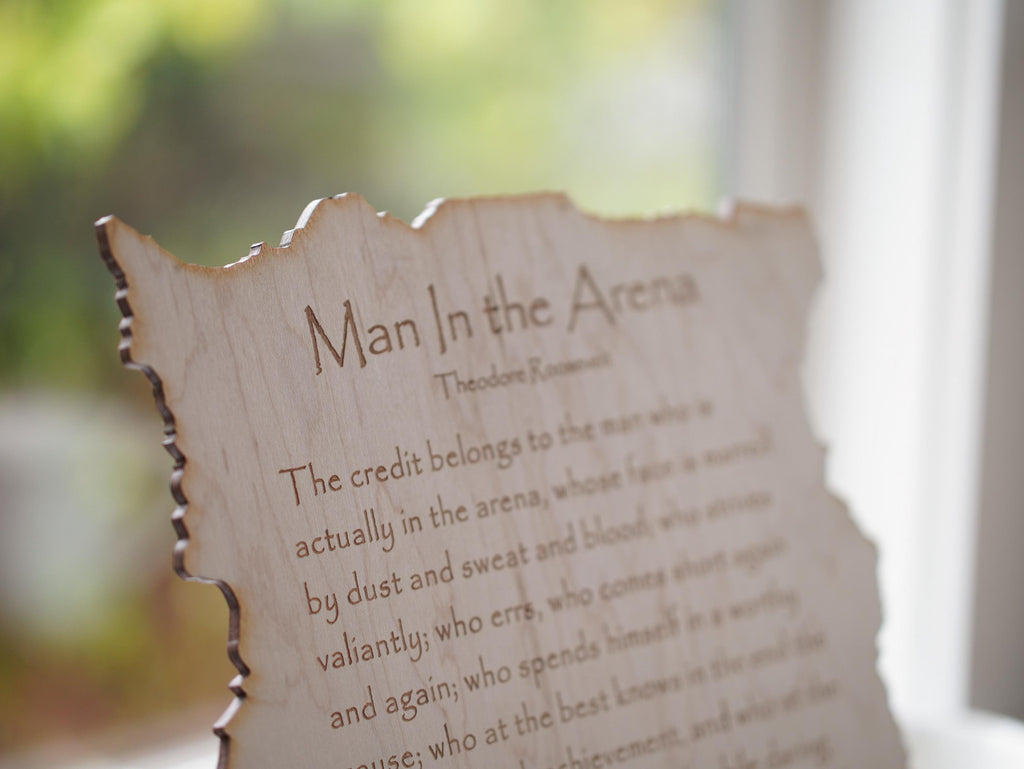 Man In the Arena
Theodore Roosevelt
The credit belongs to the man who is
actually in the arena, whose face is marred
by dust and sweat and blood; who strives
valiantly; who errs, who comes short again
and again; who spends himself in a worthy
who at the best knows in the end the
achievement, and who at the
while daring